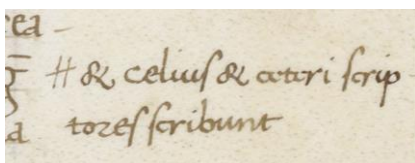 ea -
# & celius & ceteri scrip
a tores scribunt